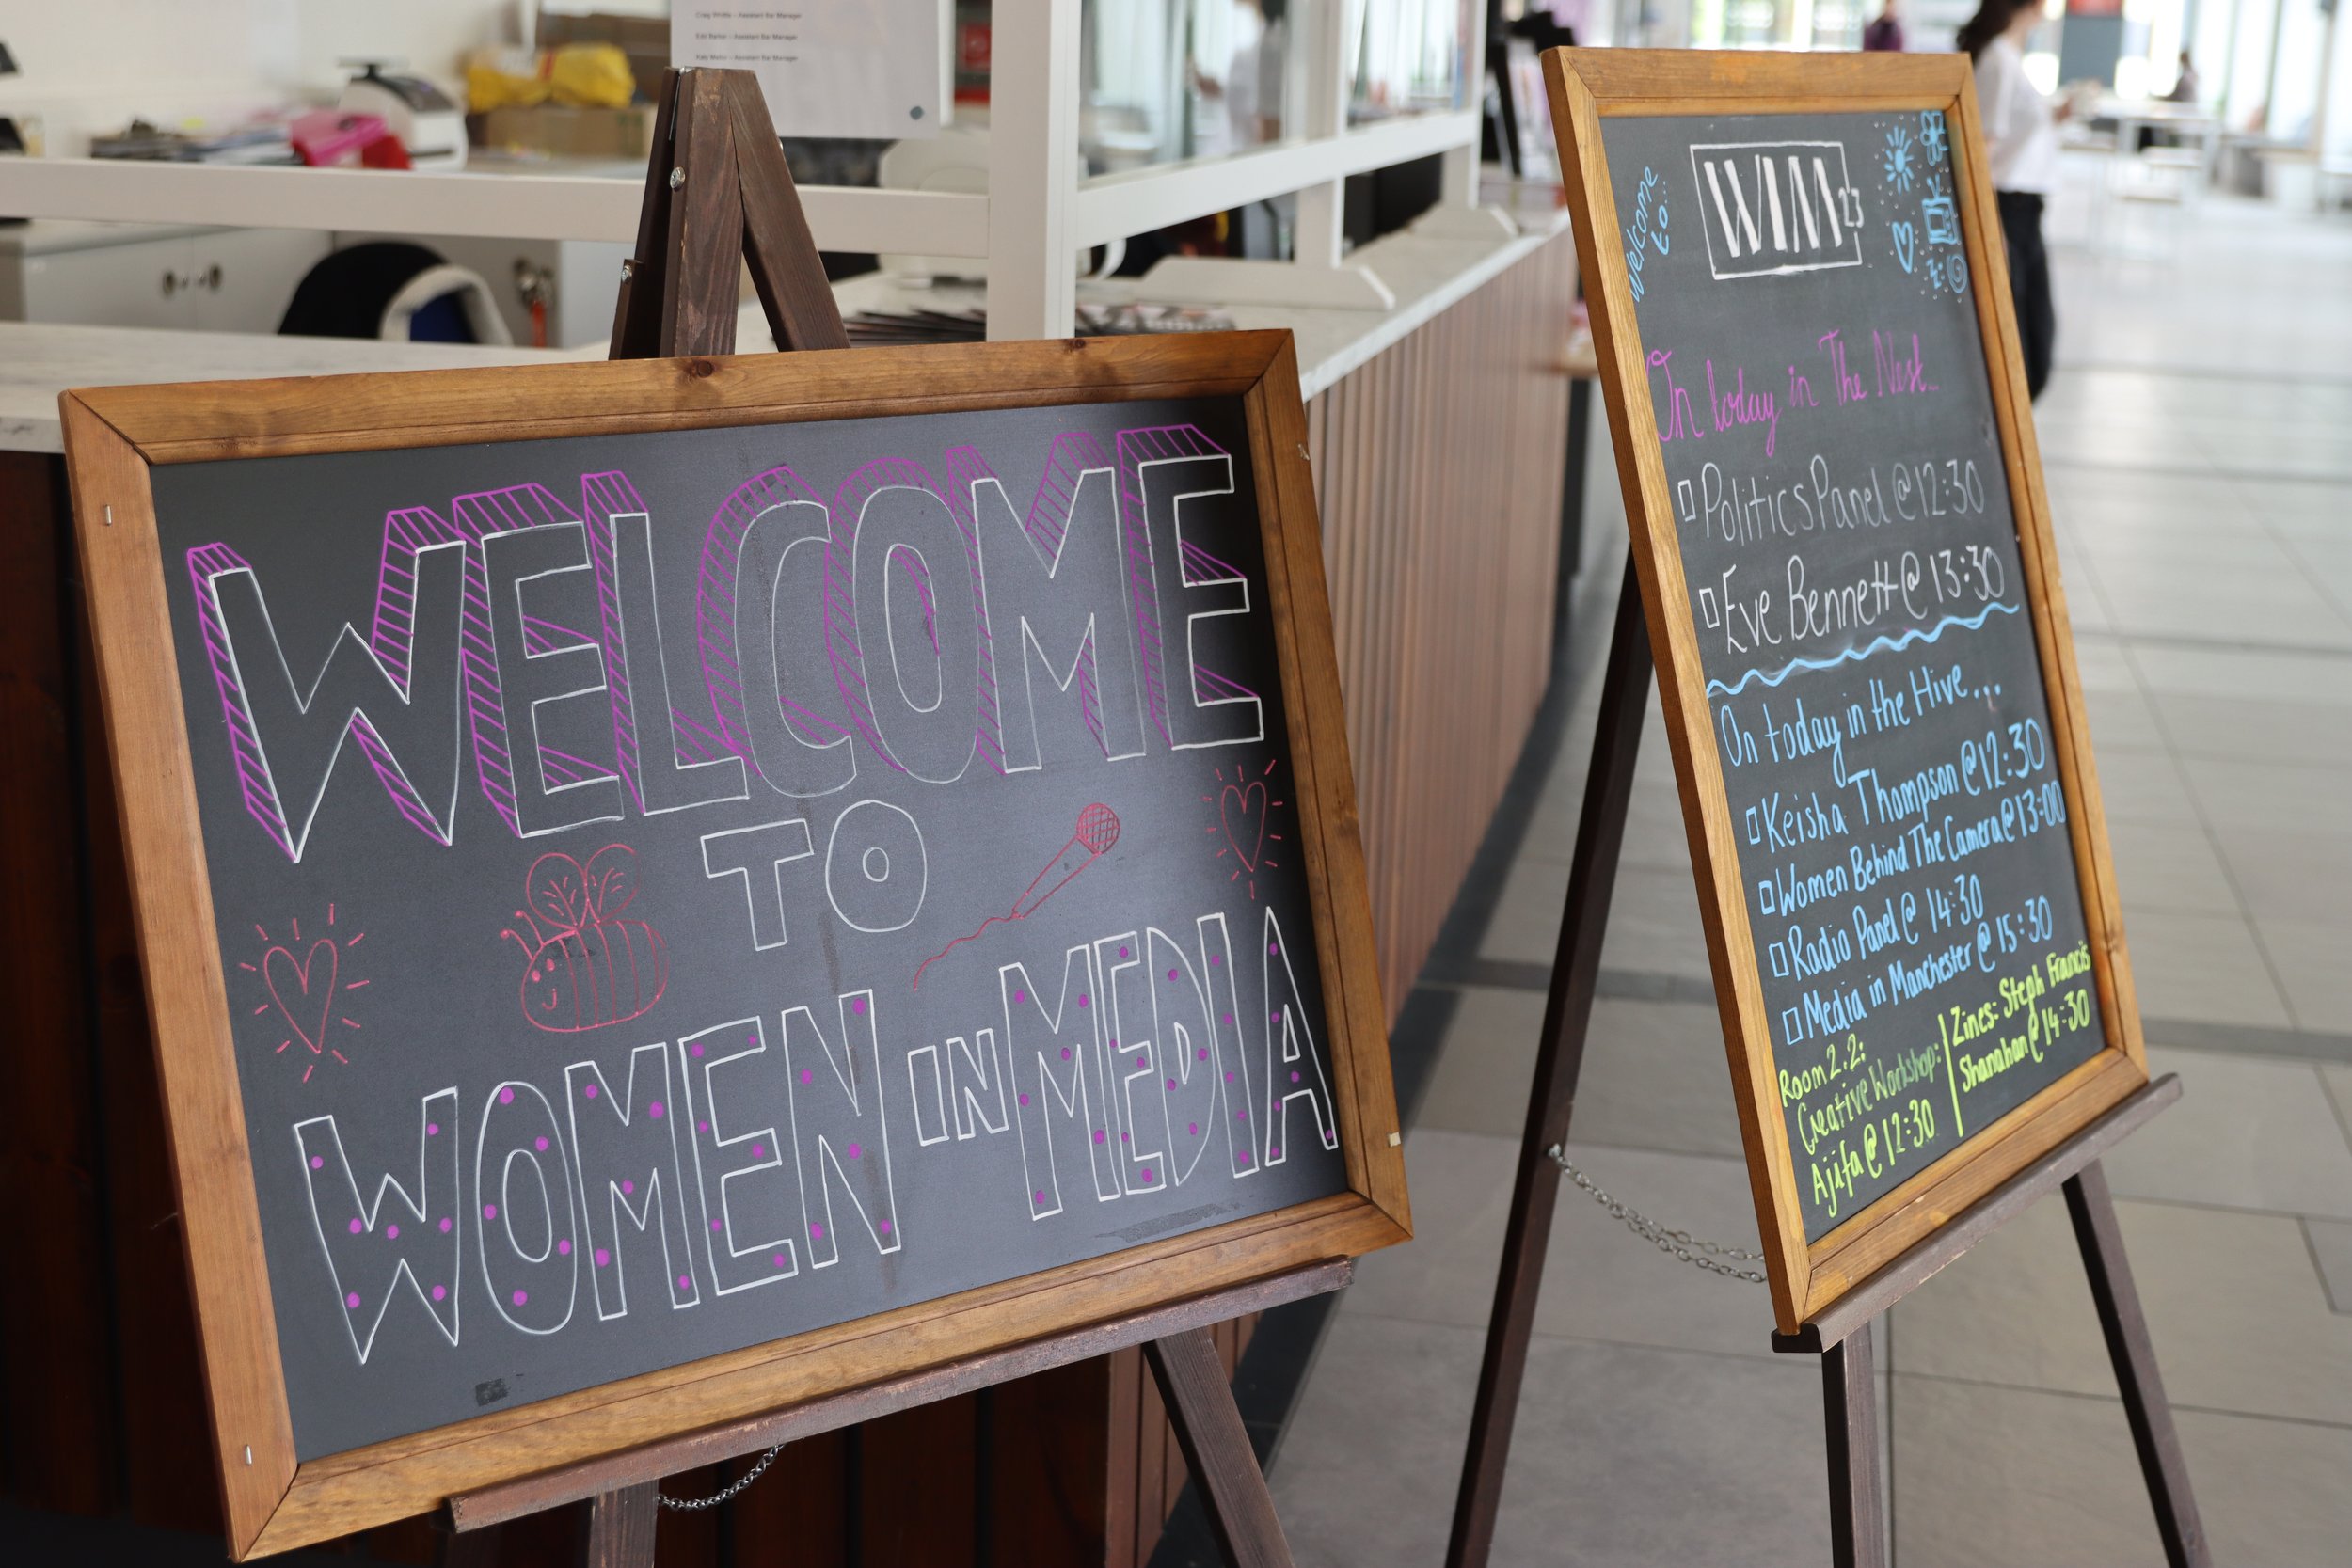 Craig White - Assistant Bar Manager
- Assistant Bar Manager
- Assistant Bar Manager
WELCOME
TO
WOMEN IN MEDIA
Welcome
to...
WIM23
On today in The Nest...
Politics Panel @ 12:30
Eve Bennett @ 13:30
On today in the Hive...
Keisha Thompson @ 12:30
Women Behind The Camera @ 13:00
Radio Panel @ 14:30
Media in Manchester @ 15:30
Room 2.2:
Creative Workshop:
Ajifa @ 12:30
Zines: Steph Francis
Shanahan @ 14:30